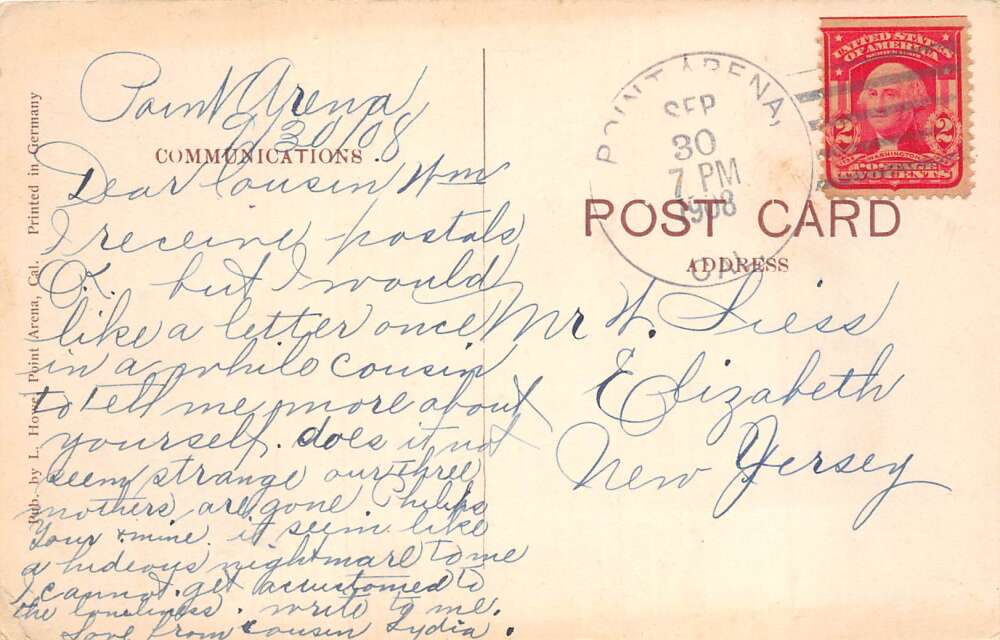 Point Arena
9/30/08
COMMUNICATIONS
Dear Cousin Wm
I receive postals
O.K. but I would
like a letter once
in a while Cousin
to tell me more about
yourself. does it not
seem strange our three
mothers are gone
Your & mine. it seem like
a hideous nightmare to me
I cannot get accustomed to
the loneliness. write to me.
Love from Cousin Lydia.
Pub. by L. Howe, Point Arena, Cal. Printed in Germany
POINT ARENA,
SEP
30
7 PM
1908
CAL
UNITED STATES
OF AMERICA
SERIES 1902
2 2
WASHINGTON
POSTAGE
TWO CENTS
POST CARD
ADDRESS
Mr W. Siess
Elizabeth
New Jersey